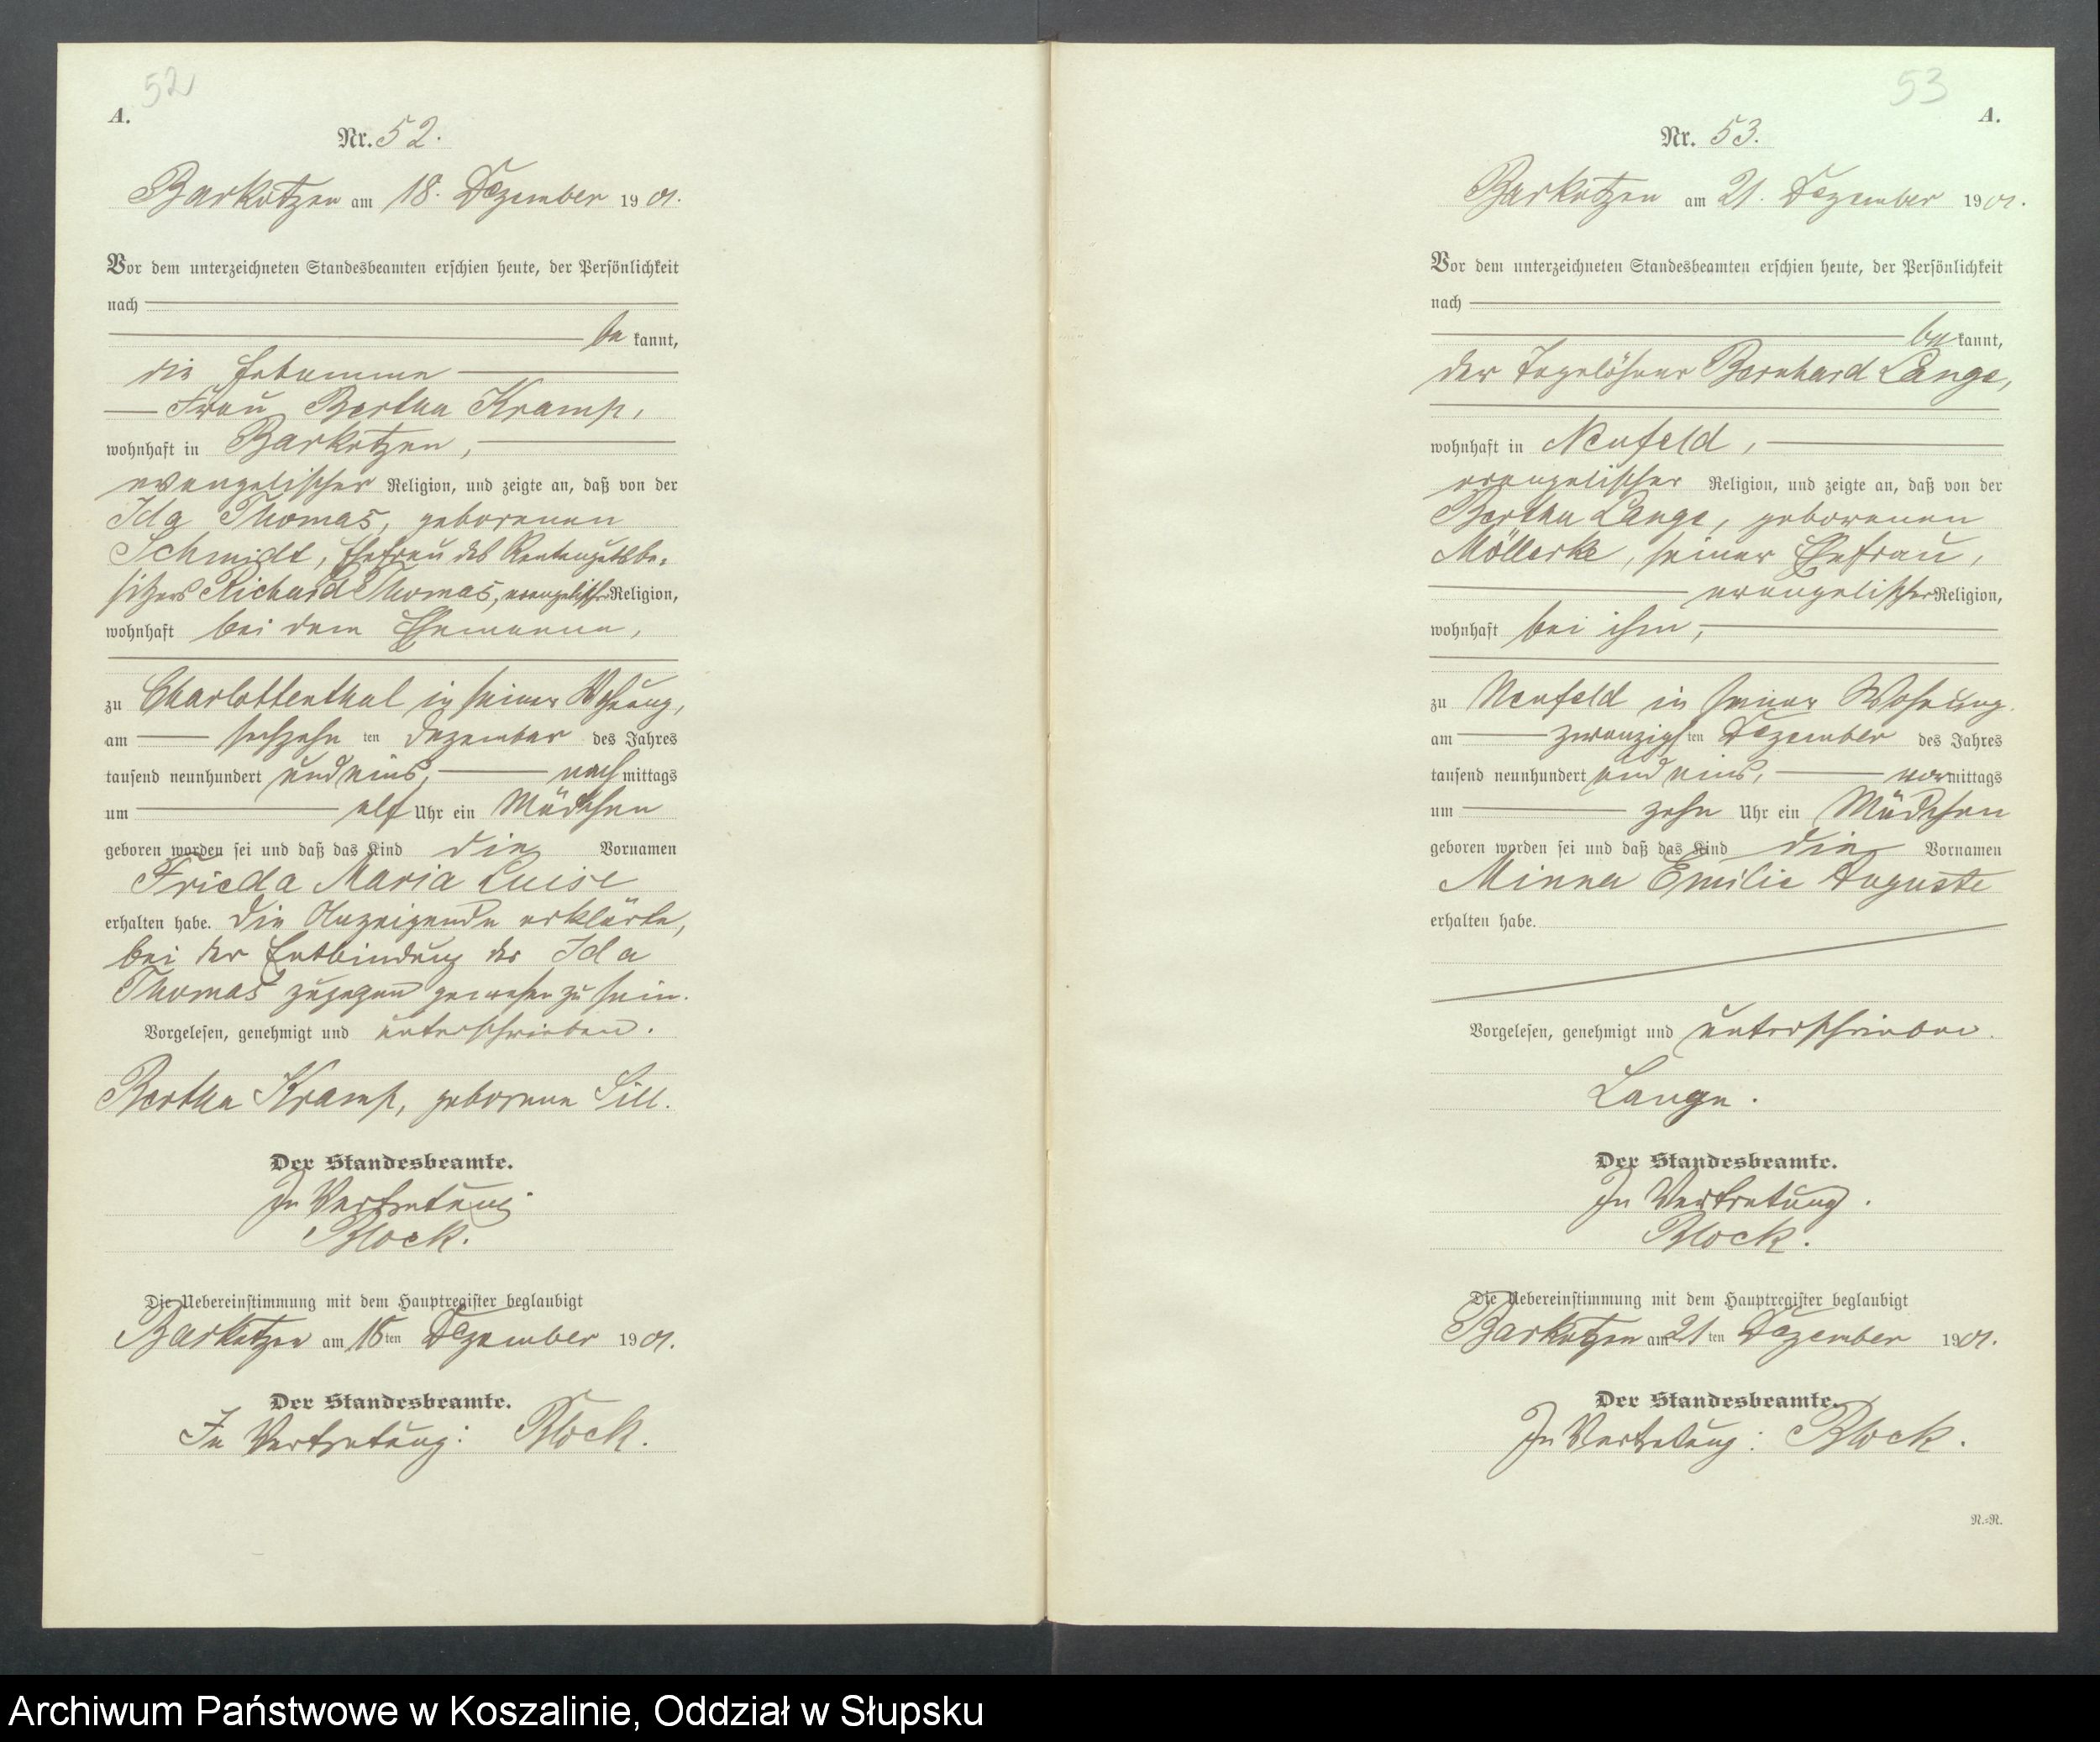 52
A.
Nr. 52.
Barkotzen am 18. Dezember 1901.
Vor dem unterzeichneten Standesbeamten erschien heute, der Persönlichkeit
nach
be kannt,
die Hebamme
Frau Bertha Kramp,
wohnhaft in Barkotzen,
evangelischer Religion, und zeigte an, daß von der
Ida Thomas, geborenen
Schmidt, Ehefrau des Rentengutsbe-
sitzers Richard Thomas, evangelischer Religion,
wohnhaft bei dem Ehemanne,
zu Charlottenthal in seiner Wohnung,
am sechszehn ten Dezember des Jahres
tausend neunhundert und eins, nach mittags
um elf Uhr ein Mädchen
geboren worden sei und daß das Kind die Vornamen
Frieda Maria Luise
erhalten habe. Die Anzeigende erklärte,
bei der Entbindung der Ida
Thomas zugegen gewesen zu sein.
Vorgelesen, genehmigt und unterschrieben.
Bertha Kramp, geborene Sill.
Der Standesbeamte.
In Vertretung.
Block.
Die Uebereinstimmung mit dem Hauptregister beglaubigt
Barkotzen am 18 ten Dezember 1901.
Der Standesbeamte.
In Vertretung: Block.
53
A.
Nr. 53.
Barkotzen am 21. Dezember 1901.
Vor dem unterzeichneten Standesbeamten erschien heute, der Persönlichkeit
nach
be kannt,
der Tagelöhner Bernhard Lange,
wohnhaft in Neufeld,
evangelischer Religion, und zeigte an, daß von der
Bertha Lange, geborenen
Möllerke, seiner Ehefrau,
evangelischer Religion,
wohnhaft bei ihm,
zu Neufeld in seiner Wohnung.
am zwanzigs ten Dezember des Jahres
tausend neunhundert und eins, vor mittags
um zehn Uhr ein Mädchen
geboren worden sei und daß das Kind die Vornamen
Minna Emilie Auguste
erhalten habe.
Vorgelesen, genehmigt und unterschrieben.
Lange.
Der Standesbeamte.
In Vertretung.
Block.
Die Uebereinstimmung mit dem Hauptregister beglaubigt
Barkotzen am 21 ten Dezember 1901.
Der Standesbeamte.
In Vertretung: Block.
R.=R.
Archiwum Państwowe w Koszalinie, Oddział w Słupsku